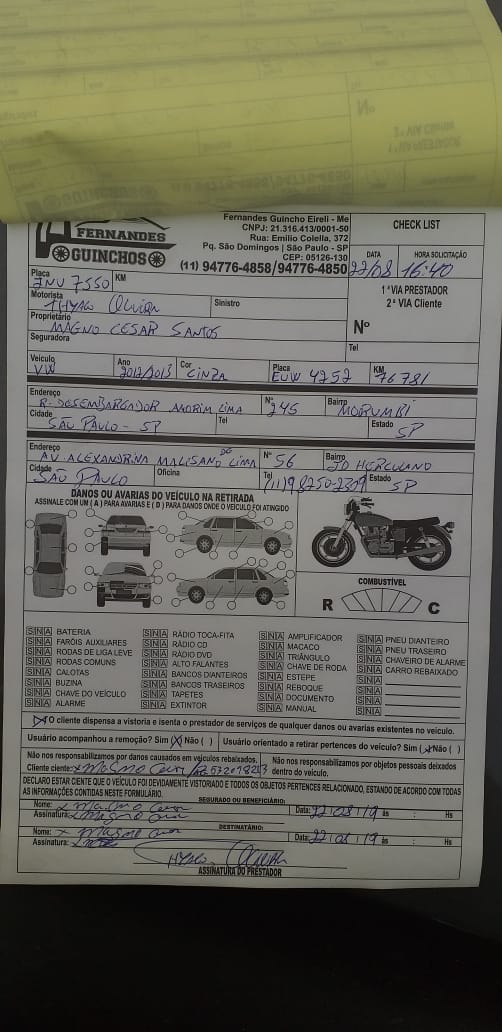 FERNANDES
GUINCHOS
Fernandes Guincho Eireli - Me
CNPJ: 21.316.413/0001-50
Rua: Emilio Colella, 372
Pq. São Domingos | São Paulo - SP
CEP: 05126-130
(11) 94776-4858/94776-4850
CHECK LIST
DATA 22/08
HORA SOLICITAÇÃO 16:40
1ª VIA PRESTADOR
2ª VIA Cliente
Nº
Placa 7550 KM
Motorista THYAGO Sinistro
Proprietário MAGNO CESAR SANTOS
Seguradora Tel
Veículo VW Ano 2012/2013 Cor CINZA Placa EUW 4252 KM 76781
Endereço R. DESEMBARGADOR AMORIM LIMA Nº 245 Bairro MORUMBI
Cidade SÃO PAULO - SP Tel Estado SP
Endereço AV. ALEXANDRINA MALISANO DE LIMA Nº 56 Bairro JD HERCULANO
Cidade SÃO PAULO Oficina Tel (11) 98250-2309 Estado SP
DANOS OU AVARIAS DO VEÍCULO NA RETIRADA
ASSINALE COM UM ( A ) PARA AVARIAS E ( D ) PARA DANOS ONDE O VEICULO FOI ATINGIDO
COMBUSTÍVEL
R C
S N A BATERIA
S N A FARÓIS AUXILIARES
S N A RODAS DE LIGA LEVE
S N A RODAS COMUNS
S N A CALOTAS
S N A BUZINA
S N A CHAVE DO VEÍCULO
S N A ALARME
S N A RÁDIO TOCA-FITA
S N A RÁDIO CD
S N A RÁDIO DVD
S N A ALTO FALANTES
S N A BANCOS DIANTEIROS
S N A BANCOS TRASEIROS
S N A TAPETES
S N A EXTINTOR
S N A AMPLIFICADOR
S N A MACACO
S N A TRIÂNGULO
S N A CHAVE DE RODA
S N A ESTEPE
S N A REBOQUE
S N A DOCUMENTO
S N A MANUAL
S N A PNEU DIANTEIRO
S N A PNEU TRASEIRO
S N A CHAVEIRO DE ALARME
S N A CARRO REBAIXADO
S N A
S N A
S N A
S N A
O cliente dispensa a vistoria e isenta o prestador de serviços de qualquer danos ou avarias existentes no veículo.
Usuário acompanhou a remoção? Sim (X) Não ( ) Usuário orientado a retirar pertences do veículo? Sim (X) Não ( )
Não nos responsabilizamos por danos causados em veículos rebaixados.
Cliente ciente:
Não nos responsabilizamos por objetos pessoais deixados
dentro do veículo.
DECLARO ESTAR CIENTE QUE O VEÍCULO FOI DEVIDAMENTE VISTORIADO E TODOS OS OBJETOS PERTENCES RELACIONADO, ESTANDO DE ACORDO COM TODAS
AS INFORMAÇÕES CONTIDAS NESTE FORMULÁRIO.
SEGURADO OU BENEFICIÁRIO:
Nome:
Assinatura: Data: 22/08/19 às : Hs
DESTINATÁRIO:
Nome:
Assinatura: Data: 22/08/19 às : Hs
ASSINATURA DO PRESTADOR